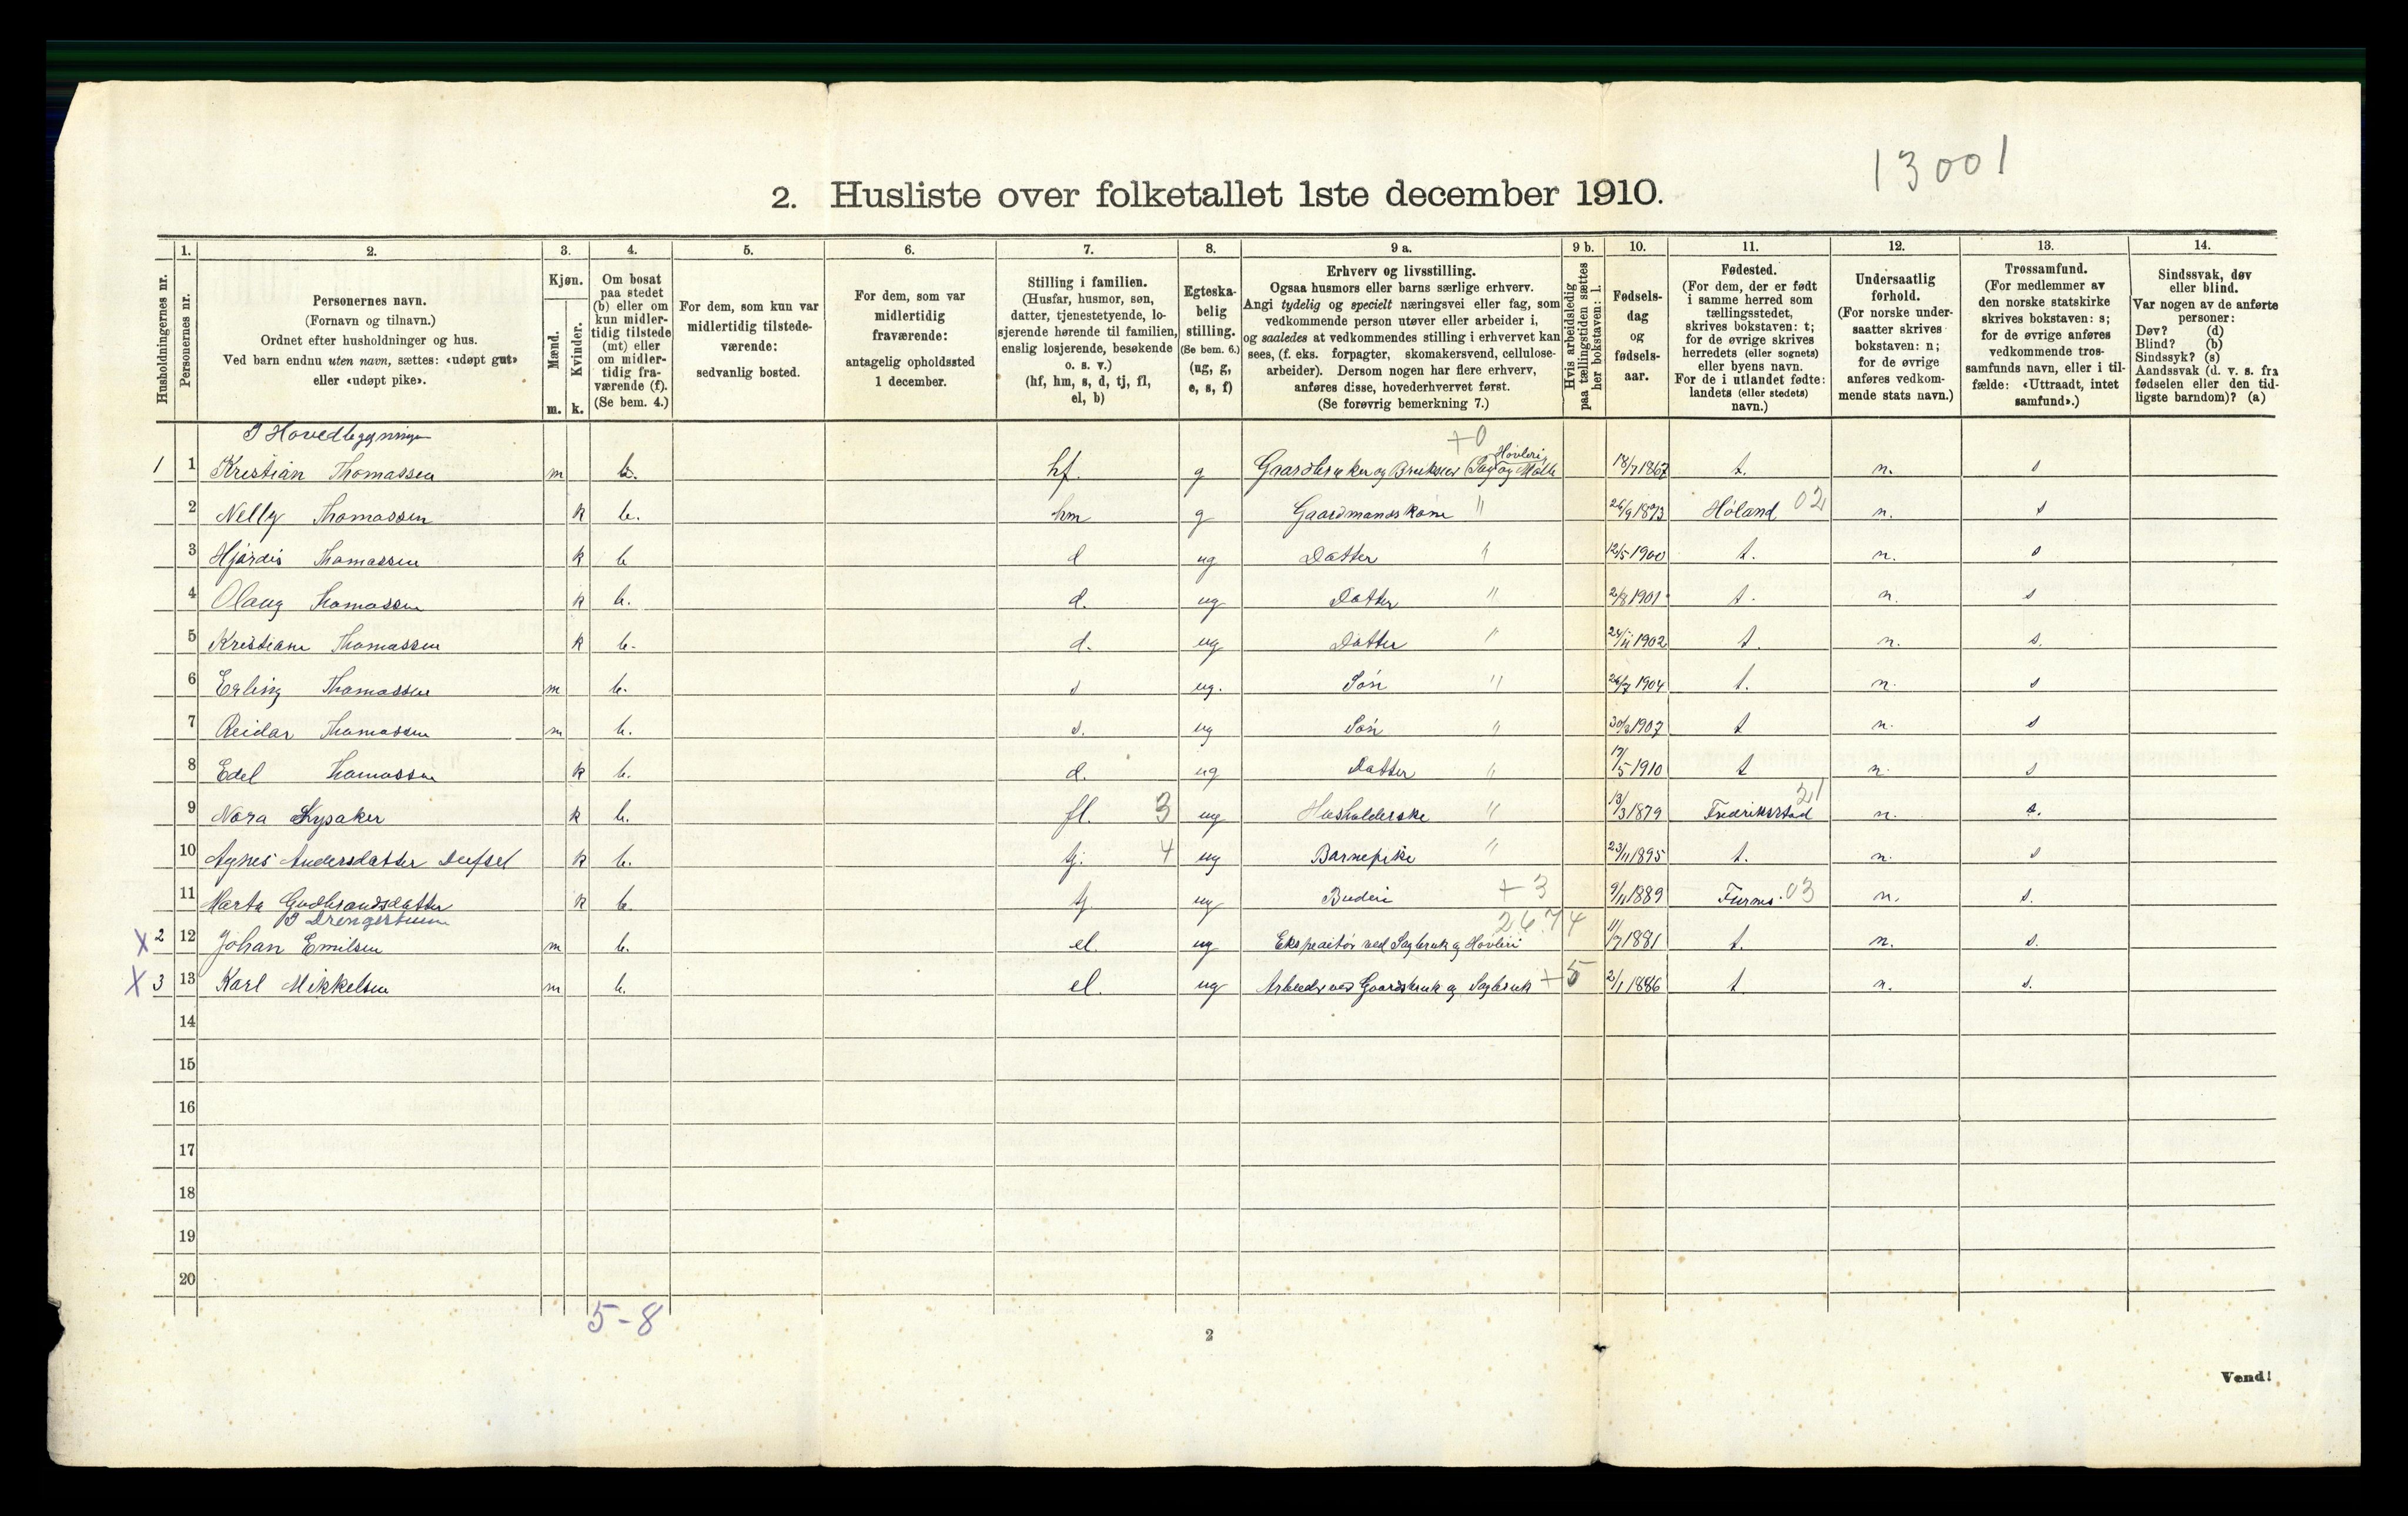 13001
2. Husliste over folketallet 1ste december 1910.
Husholdningernes nr.
1.
Personernes nr.
2.
Personernes navn.
(Fornavn og tilnavn.)
Ordnet efter husholdninger og hus.
Ved barn endnu uten navn, sættes: «udøpt gut»
eller «udøpt pike».
3.
Kjøn.
Mænd.
Kvinder.
m. k.
4.
Om bosat
paa stedet
(b) eller om
kun midler-
tidig tilstede
(mt) eller
om midler-
tidig fra-
værende (f).
(Se bem. 4.)
5.
For dem, som kun var
midlertidig tilstede-
værende:
sedvanlig bosted.
6.
For dem, som var
midlertidig
fraværende:
antagelig opholdssted
1 december.
7.
Stilling i familien.
(Husfar, husmor, søn,
datter, tjenestetyende, lo-
sjerende hørende til familien,
enslig losjerende, besøkende
o. s. v.)
(hf, hm, s, d, tj, fl,
el, b)
8.
Egteska-
belig
stilling.
(Se bem. 6.)
(ug, g,
e, s, f)
9 a.
Erhverv og livsstilling.
Ogsaa husmors eller barns særlige erhverv.
Angi tydelig og specielt næringsvei eller fag, som
vedkommende person utøver eller arbeider i,
og saaledes at vedkommendes stilling i erhvervet kan
sees, (f. eks. forpagter, skomakersvend, cellulose-
arbeider). Dersom nogen har flere erhverv,
anføres disse, hovederhvervet først.
(Se forøvrig bemerkning 7.)
9 b.
Hvis arbeidsledig
paa tællingstiden sættes
her bokstaven: l.
10.
Fødsels-
dag
og
fødsels-
aar.
11.
Fødested.
(For dem, der er født
i samme herred som
tællingsstedet,
skrives bokstaven: t;
for de øvrige skrives
herredets (eller sognets)
eller byens navn.
For de i utlandet fødte:
landets (eller stedets)
navn.)
12.
Undersaatlig
forhold.
(For norske under-
saatter skrives
bokstaven: n;
for de øvrige
anføres vedkom-
mende stats navn.)
13.
Trossamfund.
(For medlemmer av
den norske statskirke
skrives bokstaven: s;
for de øvrige anføres
vedkommende tros-
samfunds navn, eller i til-
fælde: «Uttraadt, intet
samfund».)
14.
Sindssvak, døv
eller blind.
Var nogen av de anførte
personer:
Døv? (d)
Blind? (b)
Sindssyk? (s)
Aandssvak (d. v. s. fra
fødselen eller den tid-
ligste barndom)? (a)
I Hovedbygningen
+0
Høvleri
1 1 Kristian Thomassen m b. hf. g Gaardbruker og Brukseier (Sag og Mølle 18/7 1867 t. n. s
2 Nelly Thomassen k b. hm g Gaardmandskone " 26/9 1873 Høland 02 n. s
3 Hjørdis Thomassen k b d ug Datter " 12/5 1900 t. n. s
4 Olaug Thomassen k b. d. ug Datter " 2/8 1901 t. n. s
5 Kristiane Thomassen k b. d. ug Datter " 24/11 1902 t. n. s.
6 Erling Thomassen m b. s ug. Søn " 26/7 1904 t. n. s
7 Reidar Thomassen m b. s. ug Søn " 1907 t n. s
8 Edel Thomassen k b. d. ug Datter " 17/5 1910 t n. s
9 Nora Lysaker k b. fl. 3 ug Husholderske " 13/3 1879 Fredrikstad 21 n. s.
10 Agnes Andersdatter k b. tj. 4 ug Barnepike " 23/11 1895 t. n. s
11 Marta Gudbrandsdatter k b. tj ug Buderi +3 9/11 1889 Furnes 03 n. s.
I Drengestuen
2674
X 2 12 Johan Emilsen m b. el. ug Ekspeditør ved Sagbruk og Høvleri 11/7 1881 t. n. s.
X 3 13 Karl Mikkelsen m b. el. ug Arbeider ved Gaardsbruk og Sagbruk +5 2/1 1886 t. n. s.
14
15
16
17
18
19
20
5-8
2
Vend!